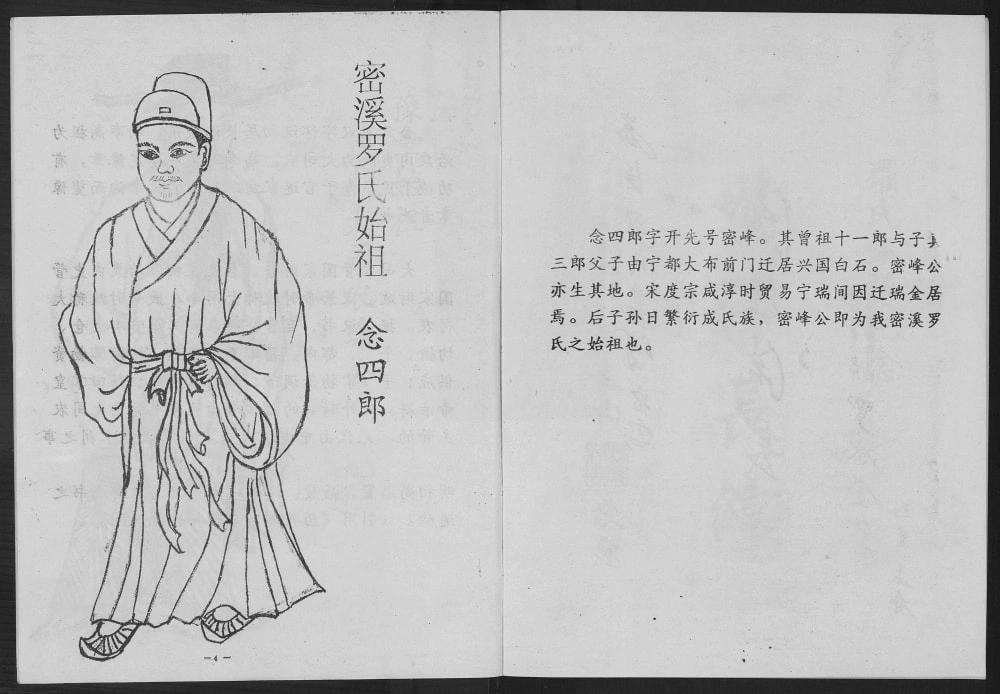 密溪罗氏始祖 念四郎
—4—
念四郎字开先号密峰。其曾祖十一郎与子
三郎父子由宁都大布前门迁居兴国白石。密峰公
亦生其地。宋度宗咸淳时贸易宁瑞间因迁瑞金居
焉。后子孙日繁衍成氏族，密峰公即为我密溪罗
氏之始祖也。